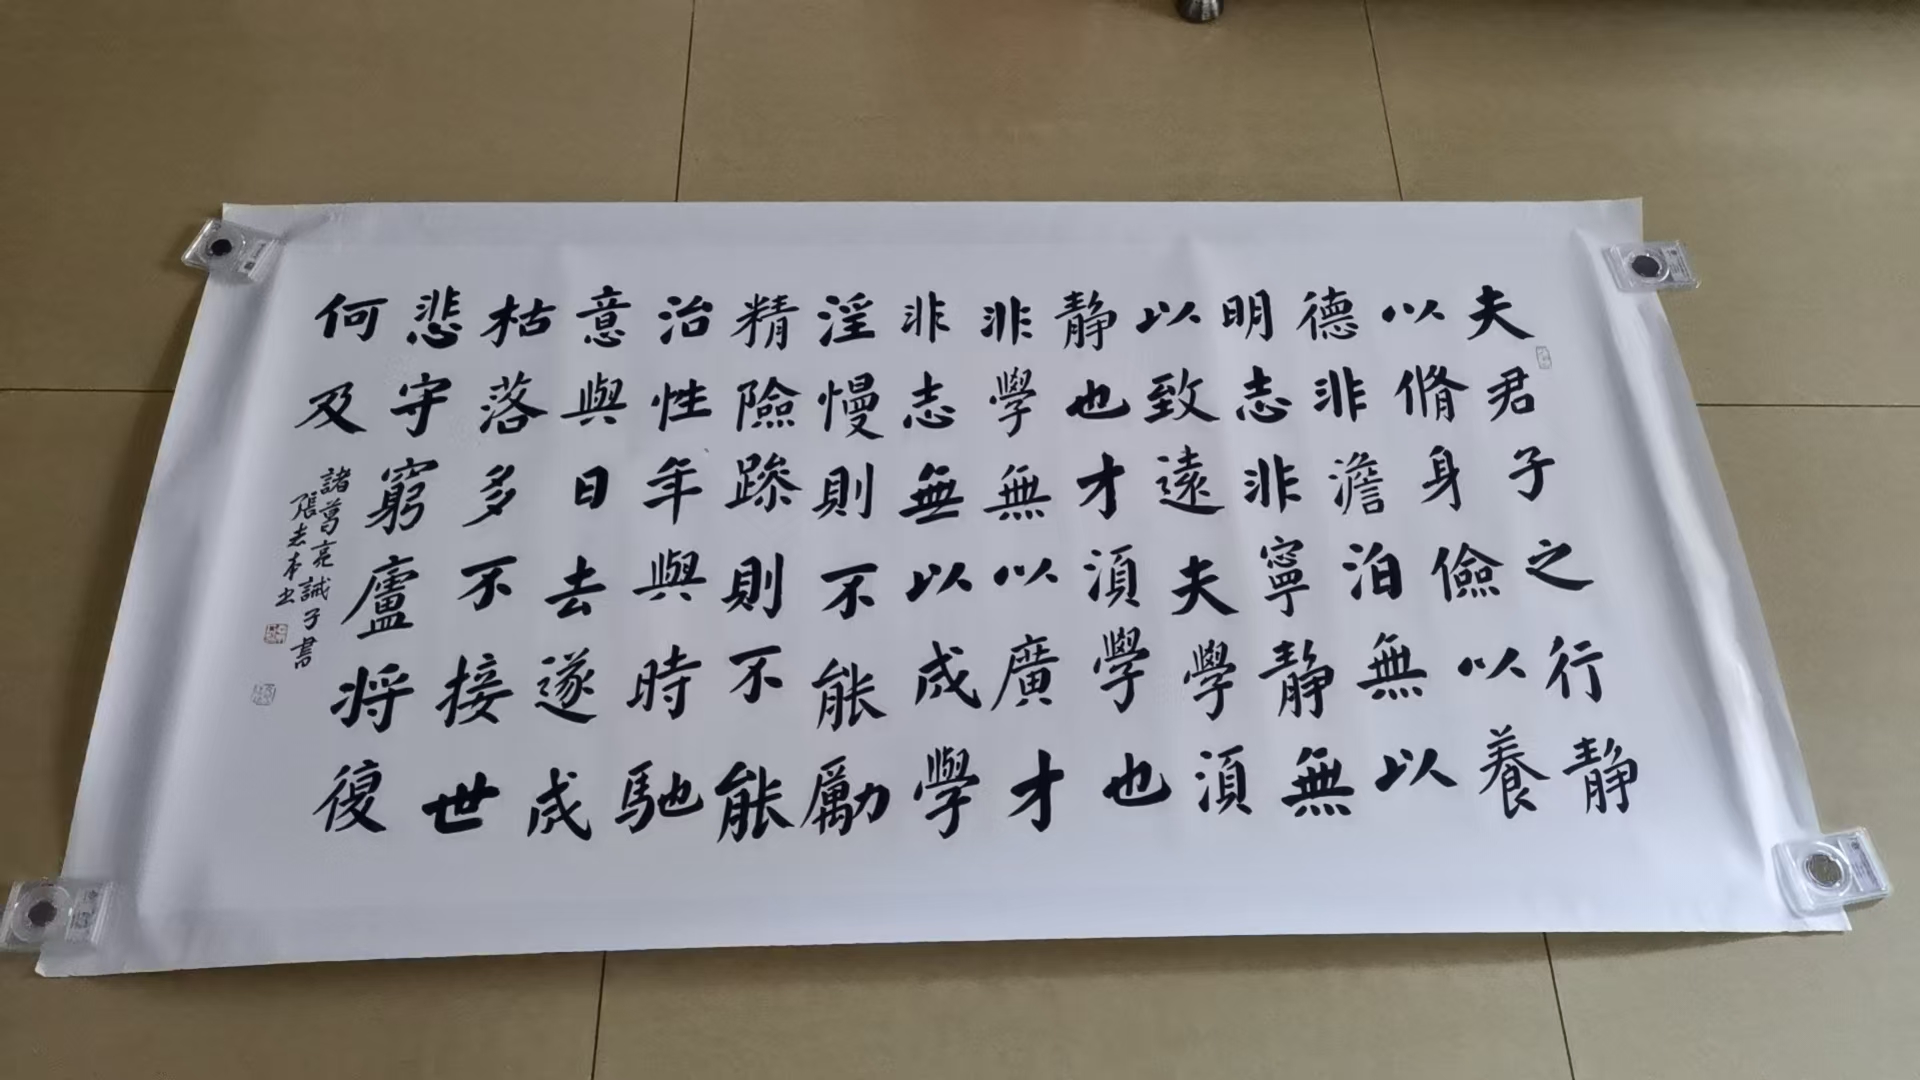 夫君子之行静
以脩身儉以養
德非澹泊無以
明志非寧静無
以致遠夫學湏
静也才湏學也
非學無以廣才
非志無以成學
淫慢則不能勵
精險躁則不能
治性年與時馳
意與日去遂成
枯落多不接世
悲守窮廬將復
何及
諸葛亮誡子書
張志本书